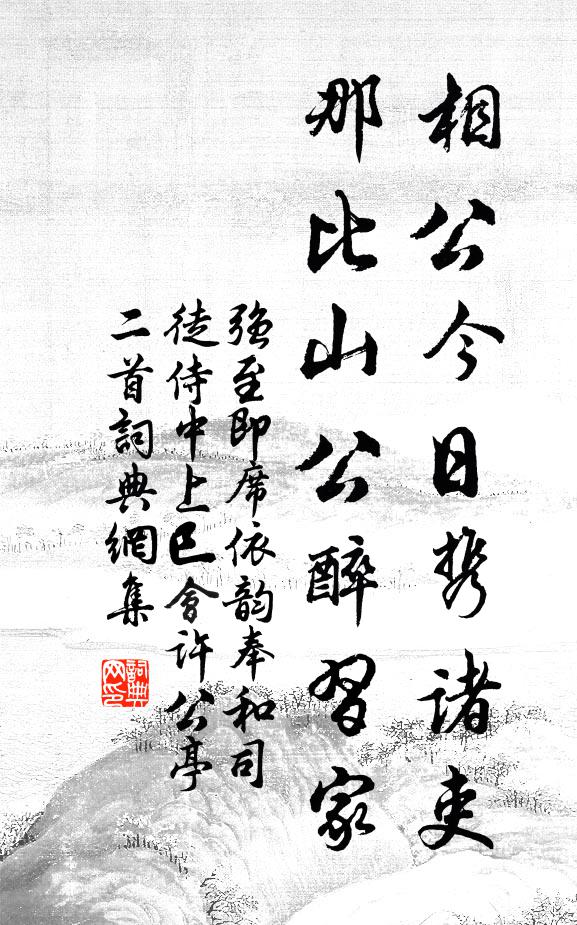 相公今日携諸吏
那比山公醉習家
强至即席依韵奉和司
徒侍中上巳會许公亭
二首詞典網集
詞典
网印